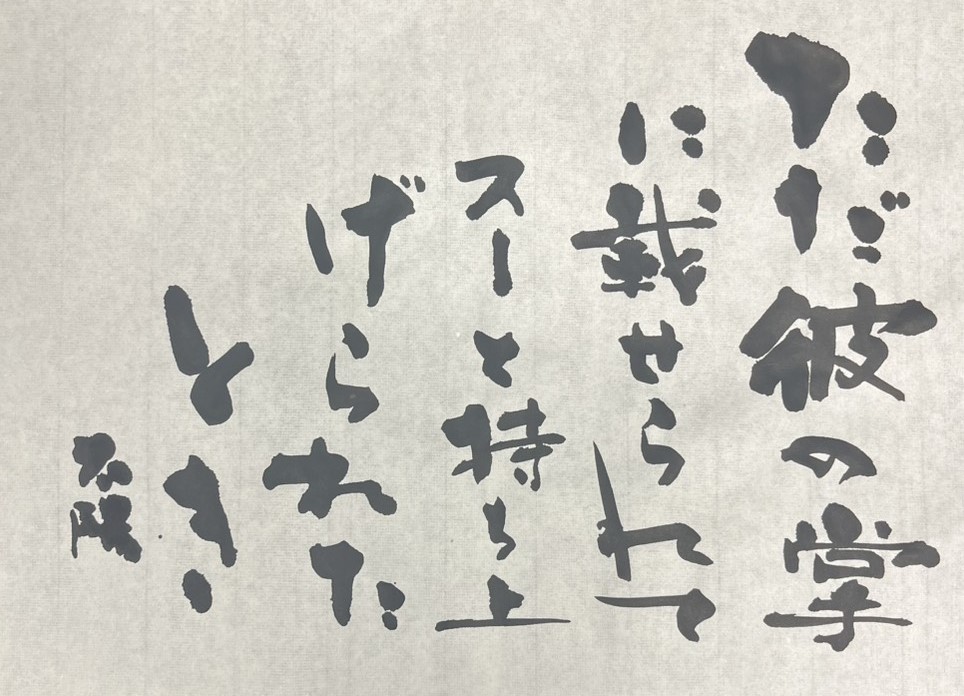 ただ彼の掌
に載せられて
スーと持ち上
げられた
とき